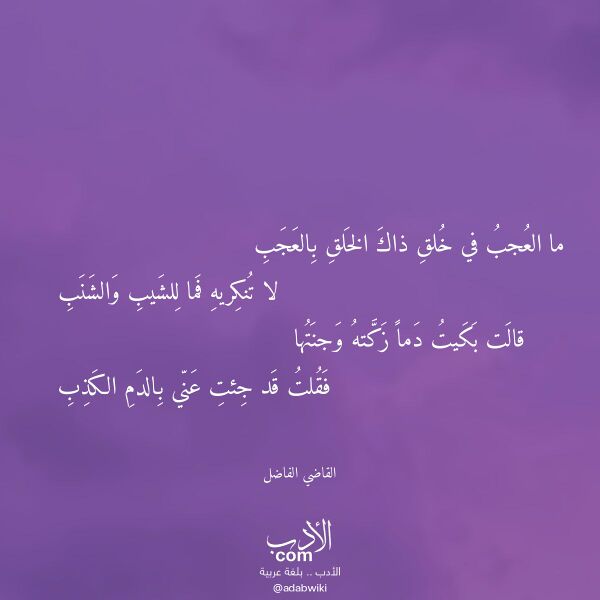 ما العُجبُ في خُلقِ ذاكَ الخَلقِ بِالعَجَبِ
لا تُنكِريهِ فَما لِلشَيبِ وَالشَنَبِ
قالَت بَكَيتُ دَماً زَكَّتهُ وَجنَتُها
فَقُلتُ قَد جِئتِ عَنّي بِالدَمِ الكَذِبِ
القاضي الفاضل
الأدب
com
الأدب .. بلغة عربية
@adabwiki